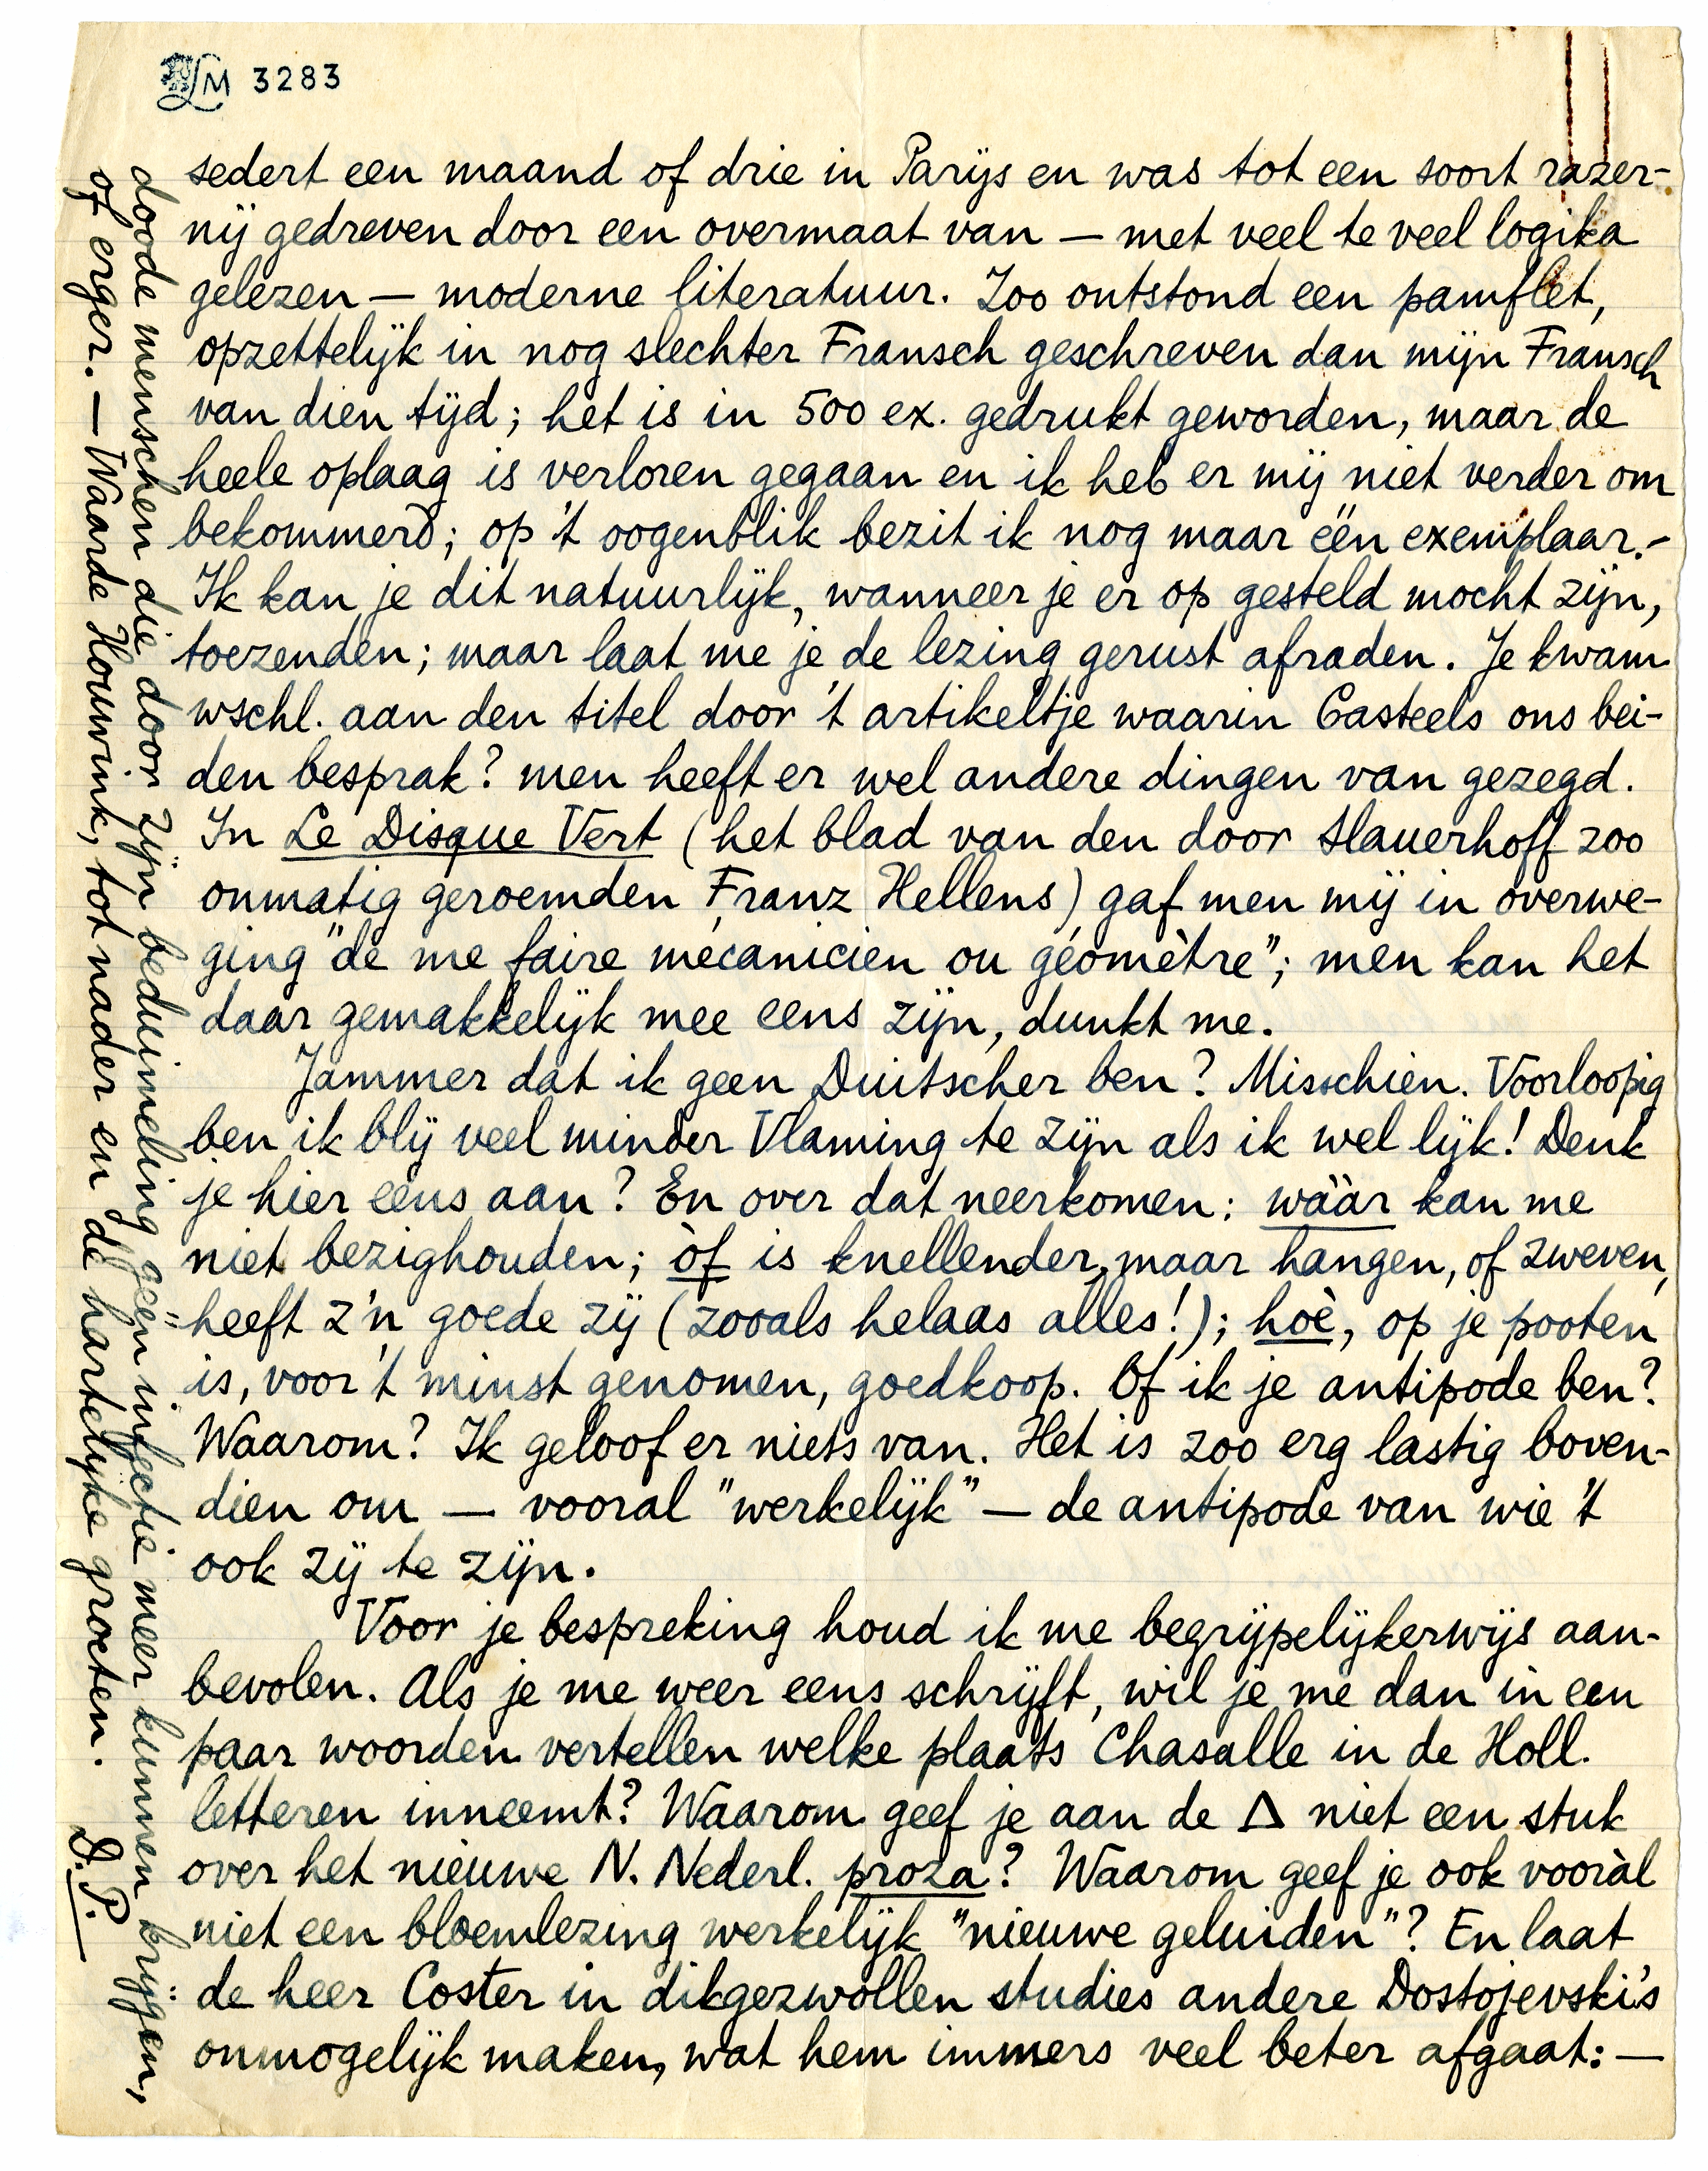 LM 3283
sedert een maand of drie in Parijs en was tot een soort razer-
nij gedreven door een overmaat van — met veel te veel logika
gelezen — moderne literatuur. Zoo ontstond een pamflet,
opzettelijk in nog slechter Fransch geschreven dan mijn Fransch
van dien tijd; het is in 500 ex. gedrukt geworden, maar de
heele oplaag is verloren gegaan en ik heb er mij niet verder om
bekommerd; op 't oogenblik bezit ik nog maar één exemplaar.-
Ik kan je dit natuurlijk, wanneer je er op gesteld mocht zijn,
toezenden; maar laat me je de lezing gerust afraden. Je kwam
wschl. aan den titel door 't artikeltje waarin Casteels ons bei-
den besprak? men heeft er wel andere dingen van gezegd.
In Le Disque Vert (het blad van den door Slauerhoff zoo
onmatig geroemden Franz Hellens) gaf men mij in overwe-
ging "de me faire mécanicien ou géomètre"; men kan het
daar gemakkelijk mee eens zijn, dunkt me.
Jammer dat ik geen Duitscher ben? Misschien. Voorloopig
ben ik blij veel minder Vlaming te zijn als ik wel lijk! Denk
je hier eens aan? En over dat neerkomen: wáár kan me
niet bezighouden; òf is knellender, maar hangen, of zweven,
heeft z'n goede zij (zooals helaas alles!); hoè, op je pooten
is, voor 't minst genomen, goedkoop. Of ik je antipode ben?
Waarom? Ik geloof er niets van. Het is zoo erg lastig boven-
dien om — vooral "werkelijk" — de antipode van wie 't
ook zij te zijn.
Voor je bespreking houd ik me begrijpelijkerwijs aan-
bevolen. Als je me weer eens schrijft, wil je me dan in een
paar woorden vertellen welke plaats Chasalle in de Holl.
letteren inneemt? Waarom geef je aan de Δ niet een stuk
over het nieuwe N. Nederl. proza? Waarom geef je ook vooràl
niet een bloemlezing werkelijk "nieuwe geluiden"? En laat
de heer Coster in dikgezwollen studies andere Dostojevski's
onmogelijk maken, wat hem immers veel beter afgaat: —
doode menschen die door zijn beduimeling géén infectie meer kunnen krijgen,
of erger. — Waarde Houwink, tot nader en de hartelijke groeten.
D.P.